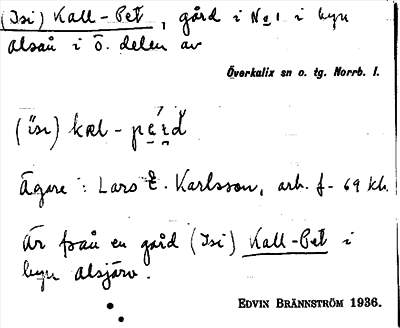 (Isi) Kall-Pet, gård i No 1 i byn
alsån i ö. delen av
Överkalix sn o. tg. Norrb. l.
(isi) kæl-
Ägare: Lars E. Karlsson, arb. f- 69 kh.
Är från en gård (Isi) Kall-Pet i
byn alsjärv.
EDVIN BRÄNNSTRÖM 1936.